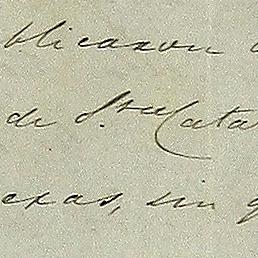 blicaron
de Sta Cata
exas, sin